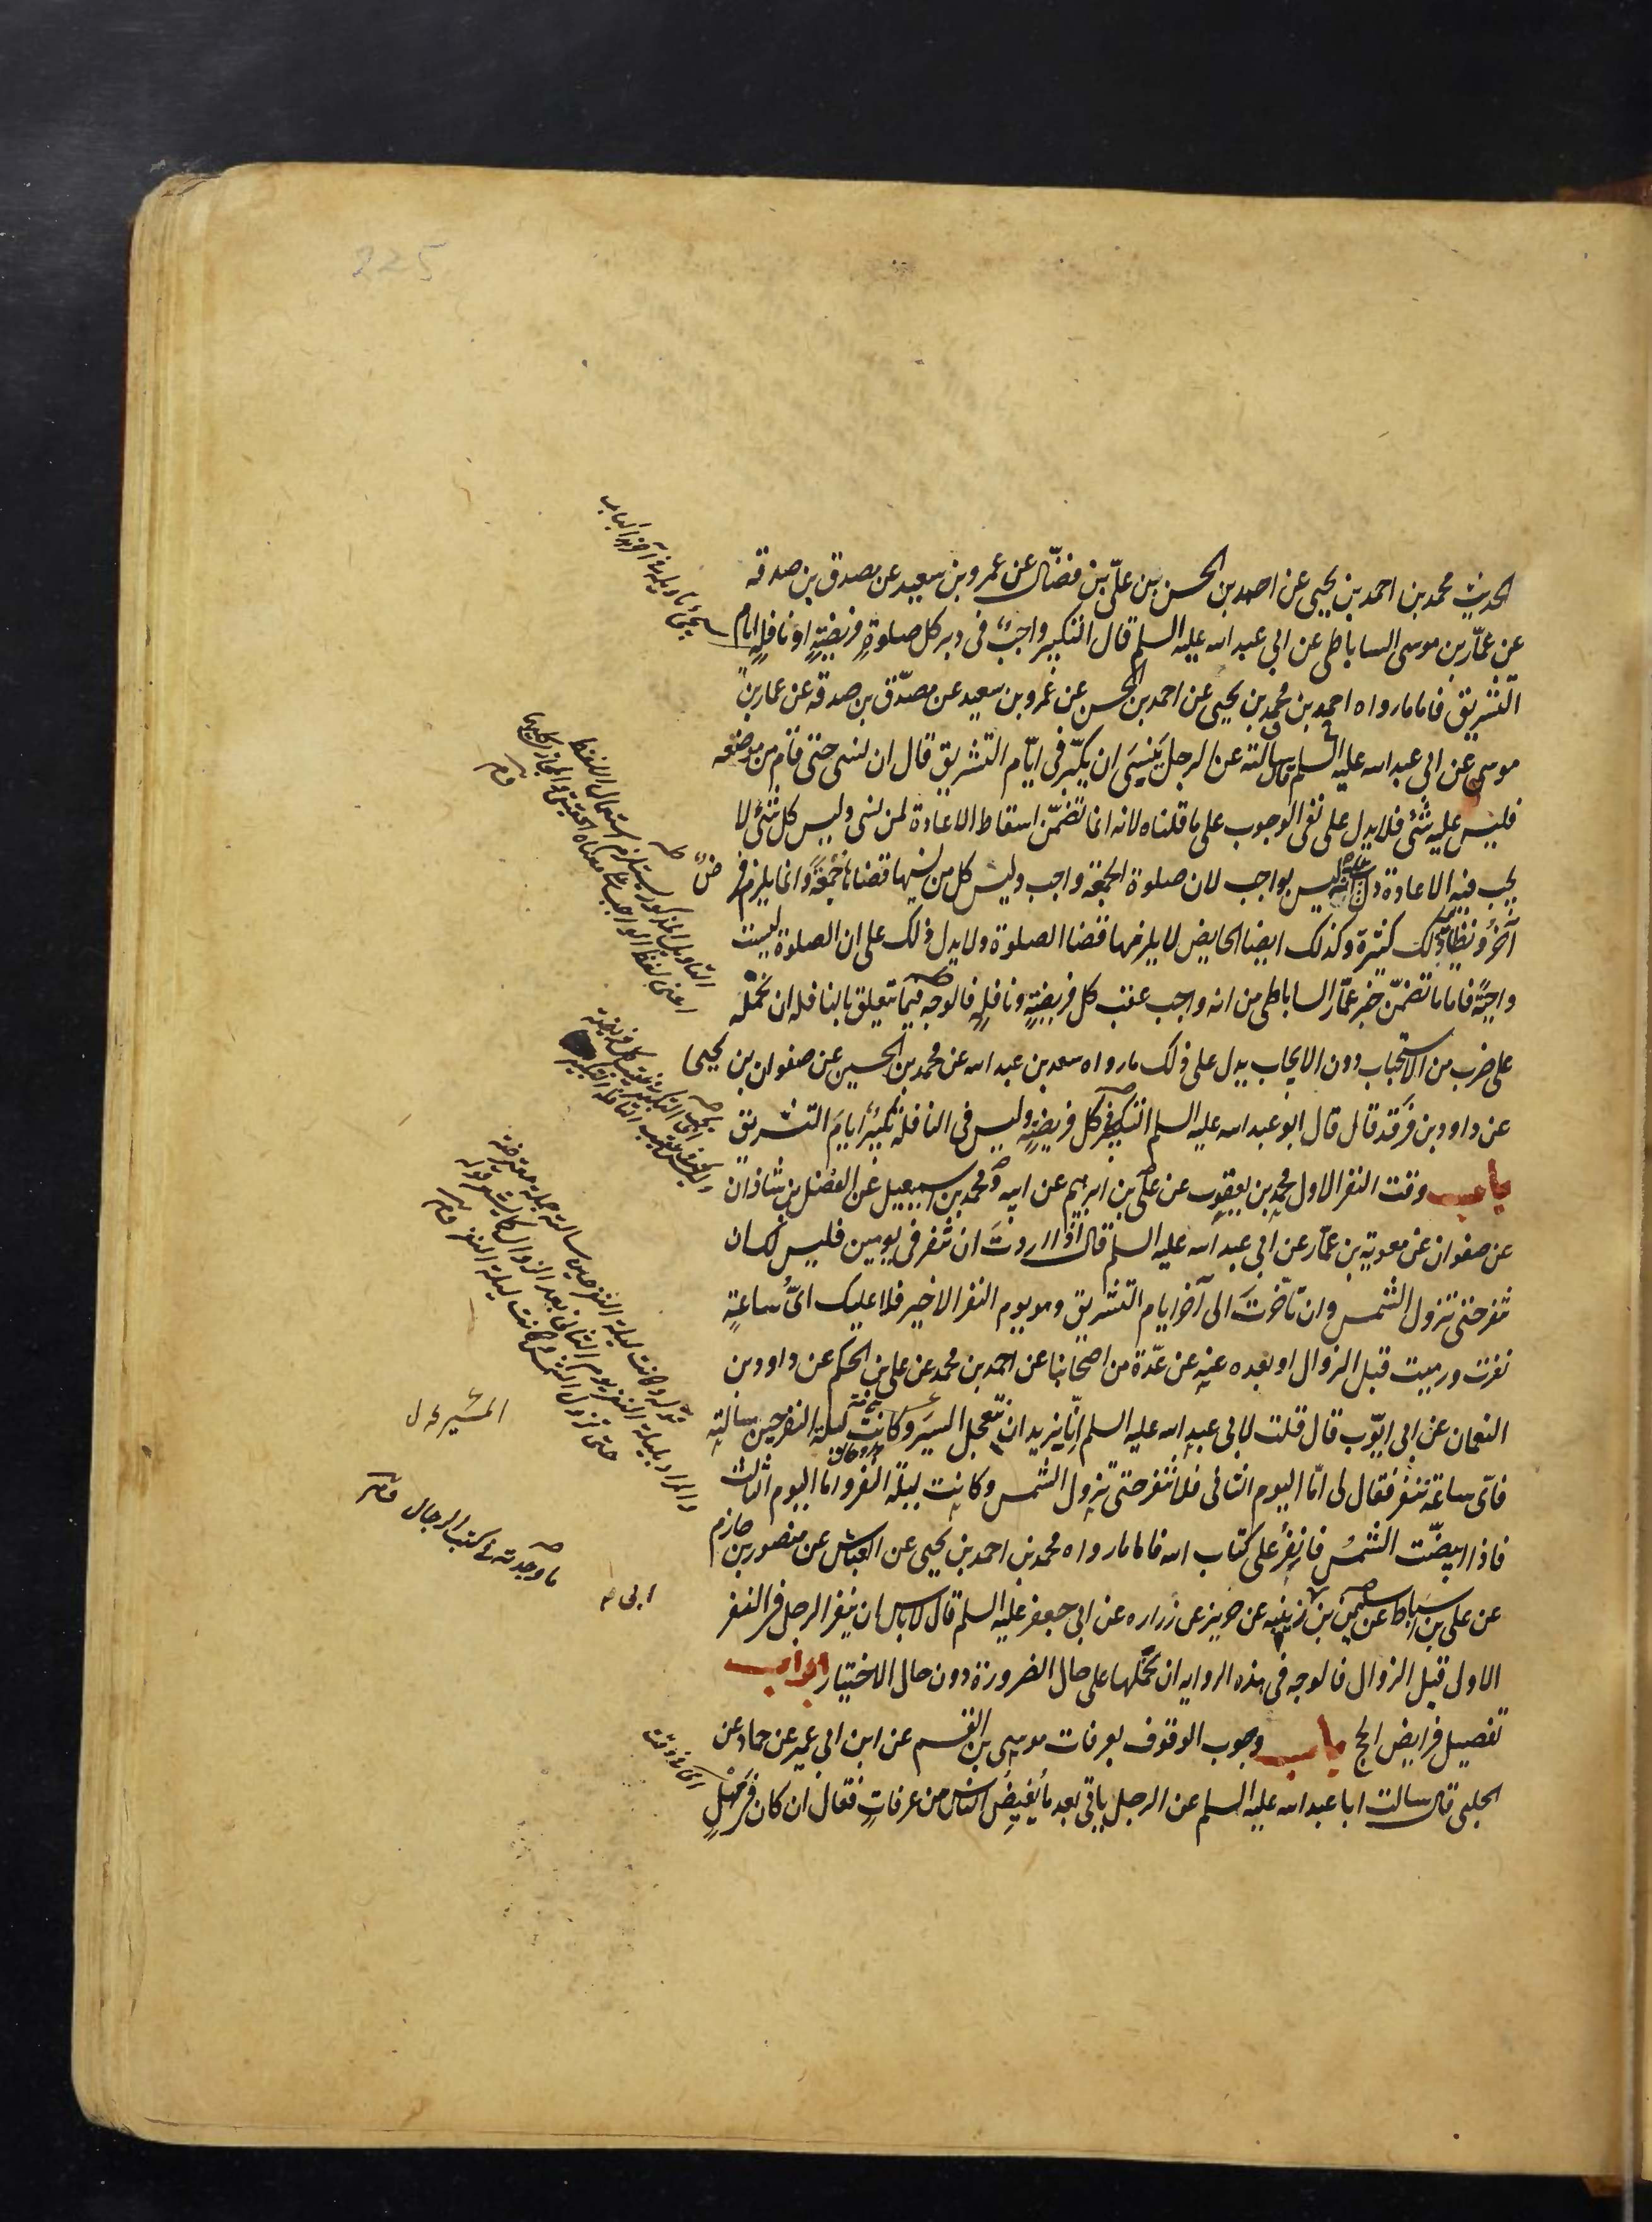 225
الحديث محمد بن احمد بن يحيى عن احمد بن الحسن بن علىّ بن فضّال عن عمرو بن سعيد عن مصدق بن صدقه
عن عمّار بن موسى الساباطى عن ابى عبد الله عليه السلم قال التكبير واجبٌ فى دبر كل صلوةٍ فريضةٍ او نافلةٍ ايام
التّشريق فاما ما رواه احمد بن محمد بن يحيى عن احمد بن الحسن عن عمرو بن سعيد عن مصدّق بن صدقه عن عمار بن
موسى عن ابى عبد الله عليه السلم قال سالته عن الرجل ينسَى ان يكبّر فى ايّام التّشريق قال ان نسى حتى قام من موضعه
فليس عليه شئ فلا يدل على نفى الوجوب على ما قلناه لانه انما تضمّن اسقاط الاعادة لمن نسى وليس كل شئ لا
يجب فيه الاعادة دل على انه ليس بواجب لان صلوة الجمعة واجب وليس كل من نسيها قضاها جُمُعَةً وانما يلزم فرضٌ
آخَرُ ونظاير ذلك كثيرة وكذلك ايضا الحايض لا يلزمها قضا الصلوة ولا يدل ذلك على ان الصلوة ليست
واجبةً فاما ما تضمّن خبر عمّار الساباطى من انه واجب عقب كل فريضةٍ ونافلةٍ فالوجه فيما يتعلق بالنافله ان نحمله
على ضرب من الاستحباب دون الايجاب يدل على ذلك ما رواه سعد بن عبد الله عن محمد بن الحسين عن صفوان بن يحيى
عن داود بن فَرقَد قال قال ابو عبد الله عليه السلم التكبير فى كل فريضةٍ وليس فى النافلة تكبيرٌ ايامَ التشريق
باب وقت النفر الاول محمد بن يعقوب عن على بن ابرهيم عن ابيه ومحمد بن اسمعيل عن الفضل بن شاذان
عن صفوان عن معوية بن عمّار عن ابى عبد الله عليه السلم قال اذا اردتَ ان تنفر فى يومين فليس لك ان
تنفر حتى تزول الشمس وان تأخّرتَ الى آخر ايام التّشريق وهو يوم النفر الاخير فلا عليك اىُّ ساعةٍ
نفرت ورميت قبل الزوال او بعده عنه عن عدّة من اصحابنا عن احمد بن محمد عن على بن الحكم عن داود بن
النعمان عن ابى ايّوب قال قلت لابى عبد الله عليه السلم انّا نريد ان نتعجل السيَر وكانت ليلة النفر حين سالته
فاىّ ساعة ننفر فقال لى امّا اليوم الثانى فلا تنفر حتى تزول الشمس وكانت ليلة النفر واما اليوم الثالث
فاذا ابيضّت الشمسُ فانفِرْ على كتاب الله فاما ما رواه محمد بن احمد بن يحيى عن العباس عن منصور بن حازم
عن على بن اسباط عن سليمن بن ابى زينبه عن حريز عن زراره عن ابى جعفر عليه السلم قال لا باس ان ينفر الرجل فى النفر
الاول قبل الزوال فالوجه فى هذه الروايه ان نحمّلها على حال الضرورة دون حال الاختيار ابواب
تفصيل فرايض الحج باب وجوب الوقوف بعرفات موسى بن القسم عن ابن ابى عمير عن حماد عن
الحلبى قال سالت ابا عبد الله عليه السلم عن الرجل ياتى بعد ما يُفيضُ الناس من عرفاتٍ فقال ان كان فى مَهَلٍ
سيجئ تاويله فى آخر الباب
التاويل المذكور يستلزم استعمال اللفظ
اعنى لفظ الواجب فى معناه الحقيقى والمجازى كليهما
قوله وكانت ليلة النفر حين سالته جملة معترضة
حتى تزول الشمس وكانت ليلة النفر
ما وجدته فى كتب الرجال
ابى
اى فى وقت